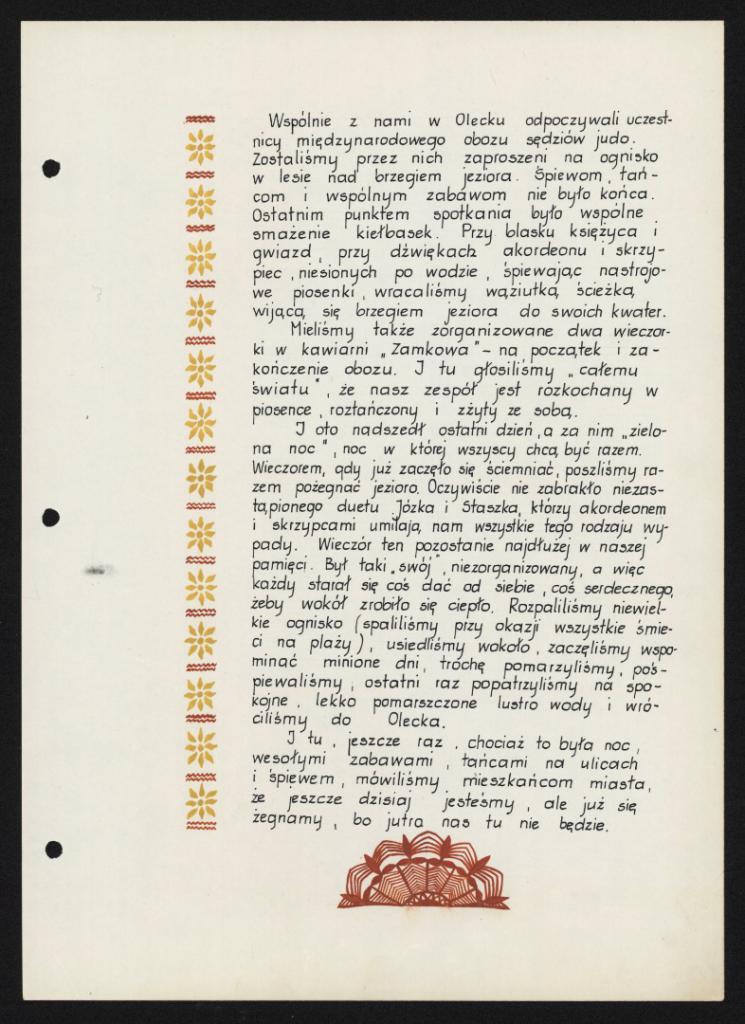 Wspólnie z nami w Olecku odpoczywali uczest-
nicy międzynarodowego obozu sędziów judo.
Zostaliśmy przez nich zaproszeni na ognisko
w lesie nad brzegiem jeziora. Śpiewom, tań-
com i wspólnym zabawom nie było końca.
Ostatnim punktem spotkania było wspólne
smażenie kiełbasek. Przy blasku księżyca i
gwiazd, przy dźwiękach akordeonu i skrzy-
piec, niesionych po wodzie, śpiewając nastrojo-
we piosenki, wracaliśmy wąziutką, ścieżką,
wijącą się brzegiem jeziora do swoich kwater.
Mieliśmy także zorganizowane dwa wieczor-
ki w kawiarni „Zamkowa" - na początek i za-
kończenie obozu. I tu głosiliśmy „całemu
światu", że nasz zespół jest rozkochany w
piosence, roztańczony i zżyty ze sobą.
I oto nadszedł ostatni dzień, a za nim „zielo-
na noc", noc w której wszyscy chcą być razem.
Wieczorem, gdy już zaczęło się ściemniać, poszliśmy ra-
zem pożegnać jezioro. Oczywiście nie zabrakło niezas-
tąpionego duetu Józka i Staszka, którzy akordeonem
i skrzypcami umilają nam wszystkie tego rodzaju wy-
pady. Wieczór ten pozostanie najdłużej w naszej
pamięci. Był taki „swój", niezorganizowany, a więc
każdy starał się coś dać od siebie, coś serdecznego,
żeby wokół zrobiło się ciepło. Rozpaliliśmy niewiel-
kie ognisko (spaliliśmy przy okazji wszystkie śmie-
ci na plaży), usiedliśmy wokoło, zaczęliśmy wspo-
minać minione dni, trochę pomarzyliśmy, poś-
piewaliśmy, ostatni raz popatrzyliśmy na spo-
kojne, lekko pomarszczone lustro wody i wró-
ciliśmy do Olecka.
I tu, jeszcze raz, chociaż to była noc,
wesołymi zabawami, tańcami na ulicach
i śpiewem, mówiliśmy mieszkańcom miasta,
że jeszcze dzisiaj jesteśmy, ale już się
żegnamy, bo jutro nas tu nie będzie.